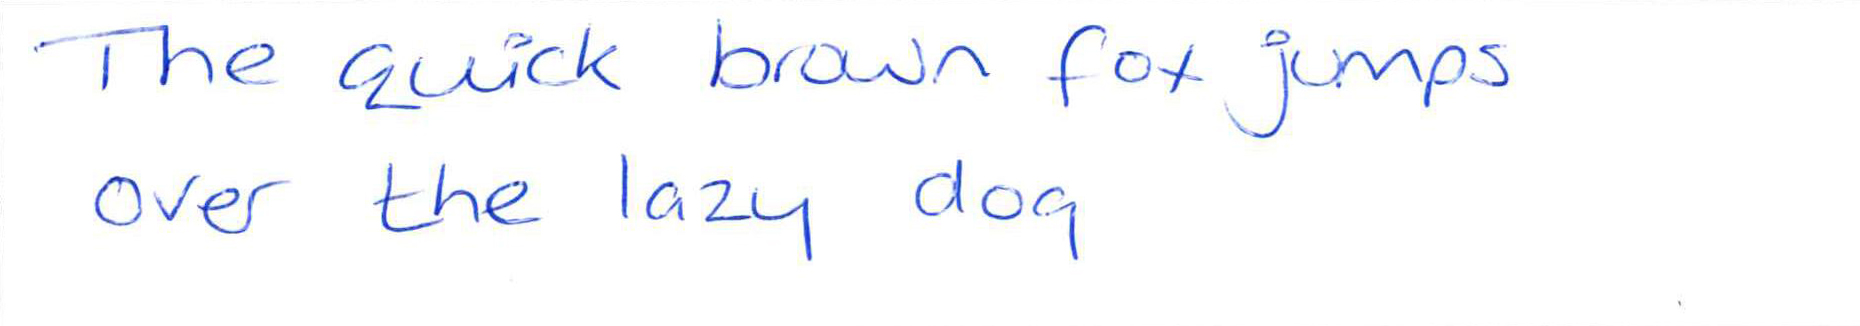 The quick brown fox jumps
over the lazy dog